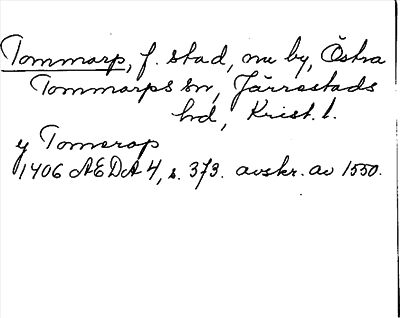 Tommarp, f. stad, nu by, Östra
Tommarps sn, Järrestads
hd, Krist. l.
y Tomerop
1406 AEDA 4, s. 373. avskr. av 1550.